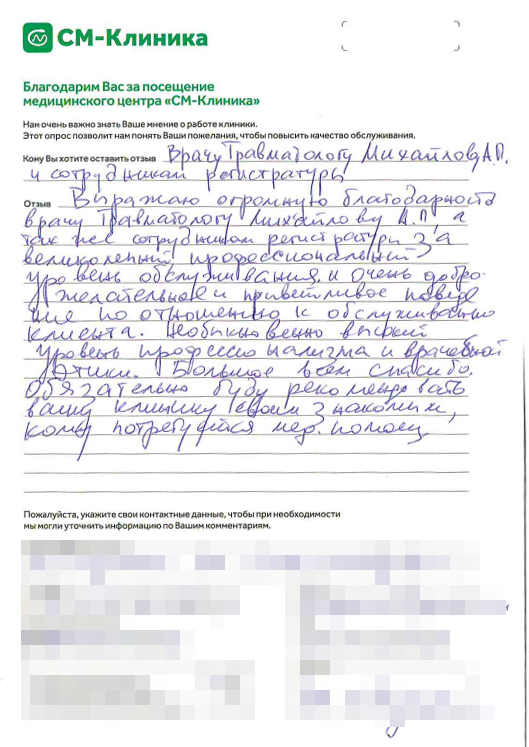 СМ-Клиника
Благодарим Вас за посещение
медицинского центра «СМ-Клиника»
Нам очень важно знать Ваше мнение о работе клиники.
Этот опрос позволит нам понять Ваши пожелания, чтобы повысить качество обслуживания.
Кому Вы хотите оставить отзыв Врачу Травматологу Михайлову А.П.
и сотрудникам регистратуры
Отзыв Выражаю огромную благодарность
врачу Травматологу Михайлову А.П, а
так же сотрудникам регистратуры за
великолепный профессиональный
уровень обслуживания, и очень добро-
желательное и приветливое поведе
ние по отношению к обслуживанию
клиента. Необыкновенно высокий
уровень профессионализма и врачебной
этики. Большое всем спасибо.
Обязательно буду рекомендовать
вашу клинику своим знакомым,
кому потребуется мед. помощ
Пожалуйста, укажите свои контактные данные, чтобы при необходимости
мы могли уточнить информацию по Вашим комментариям.